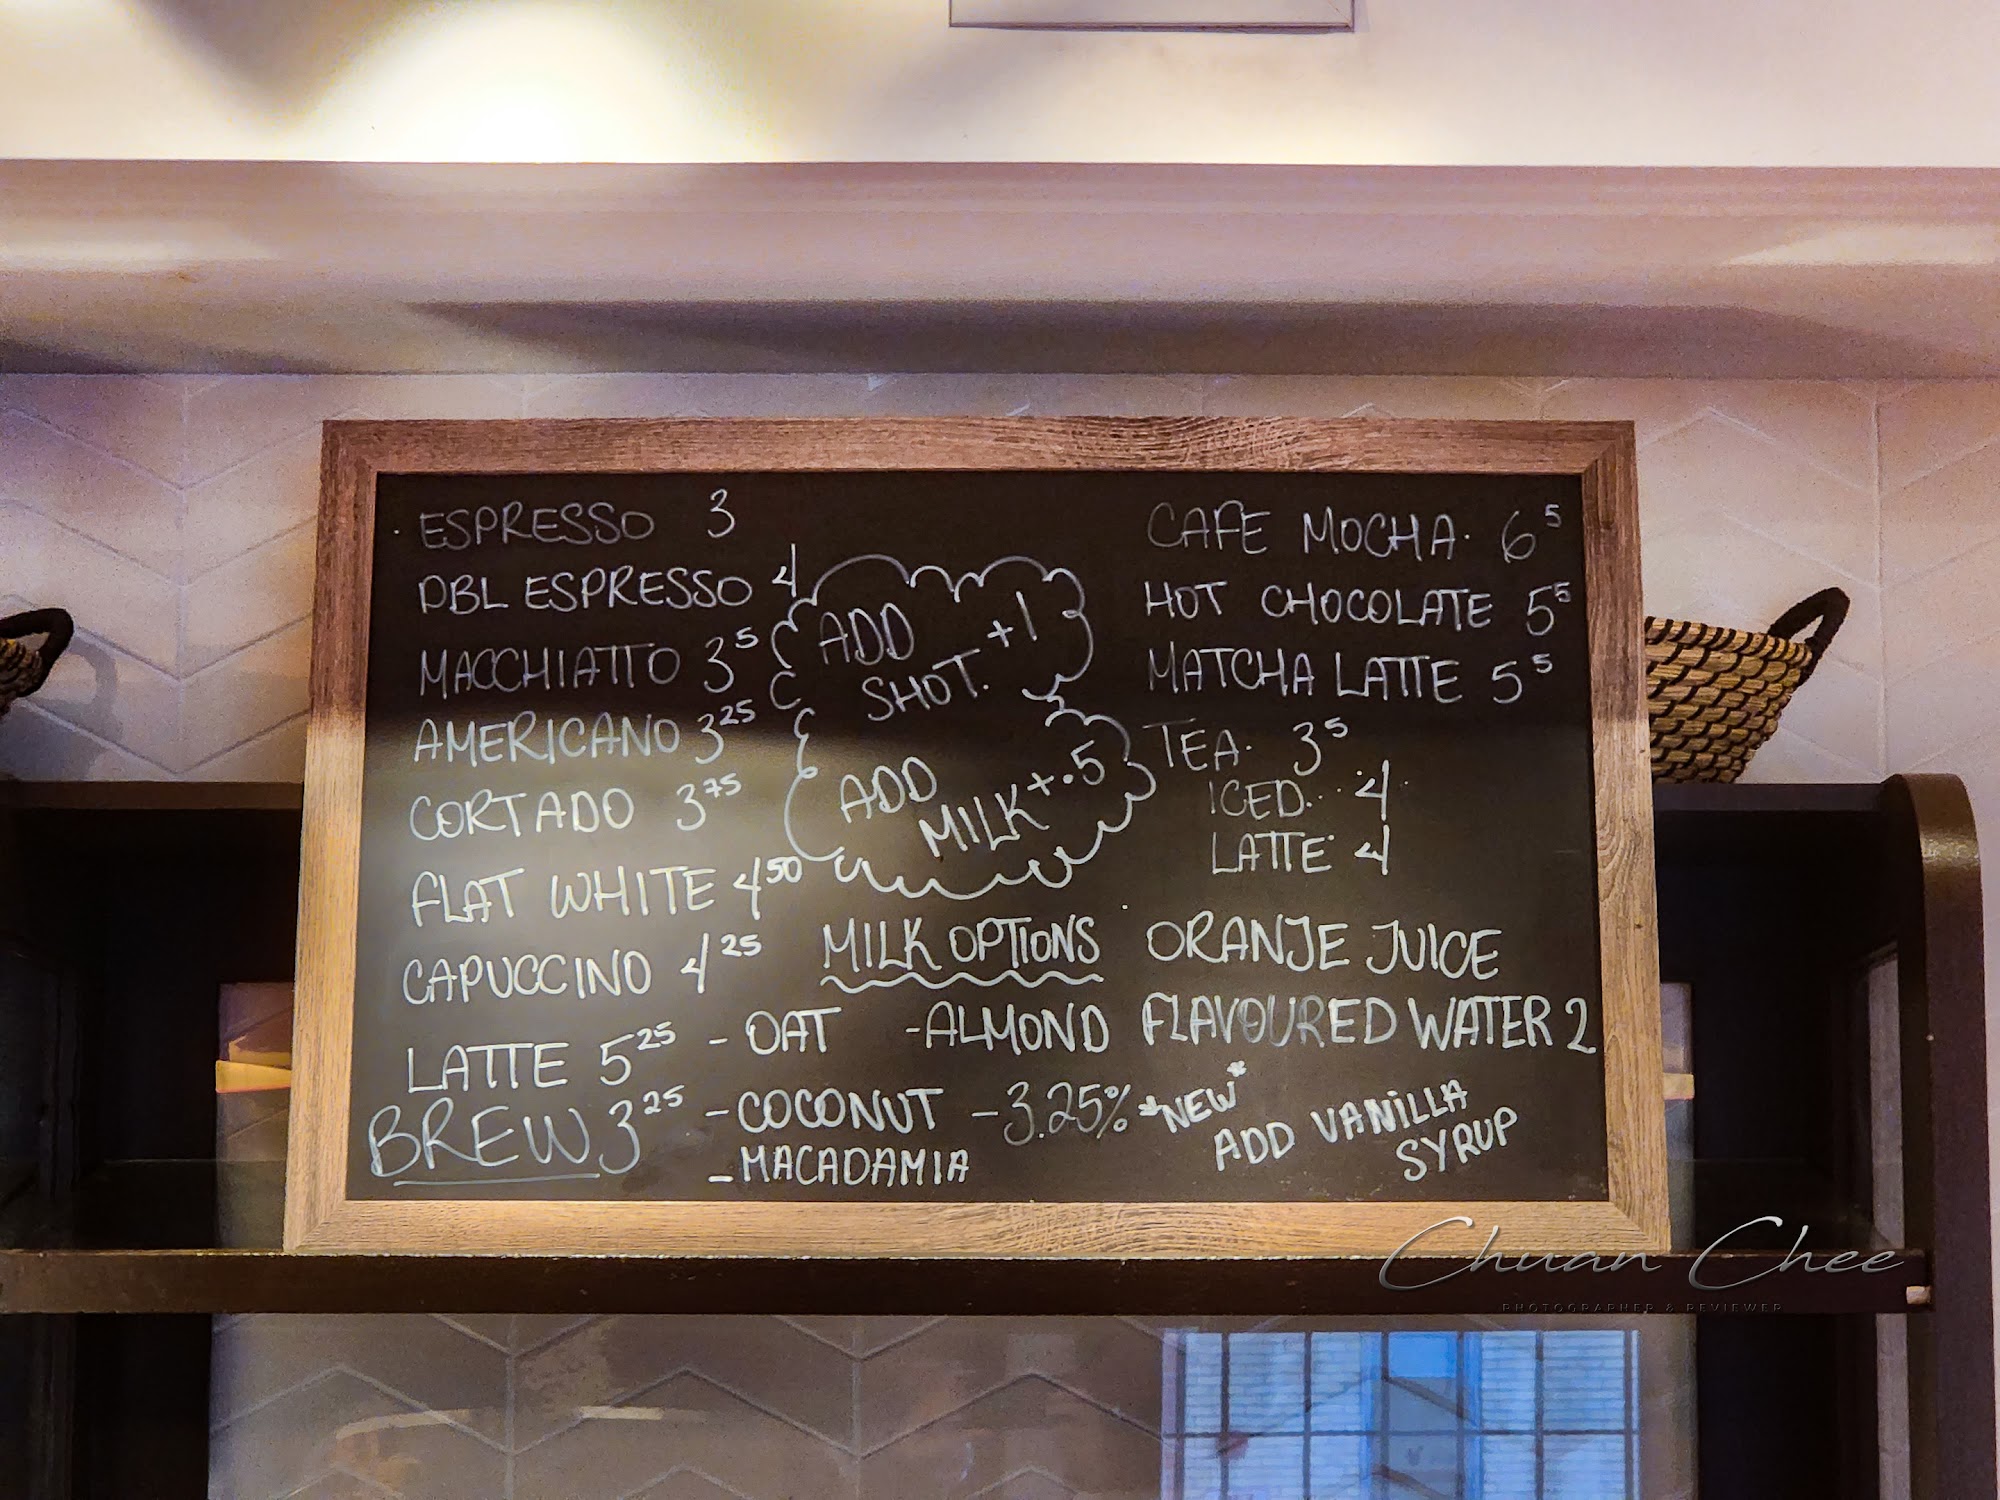 ESPRESSO 3
DBL ESPRESSO 4
MACCHIATTO 3 5
AMERICANO 3 25
CORTADO 3 75
FLAT WHITE 4 50
CAPUCCINO 4 25
LATTE 5 25
BREW 3 25
ADD
SHOT. +1
ADD
MILK +.5
MILK OPTIONS
- OAT - ALMOND
- COCONUT - 3.25%
- MACADAMIA
CAFE MOCHA. 6 5
HOT CHOCOLATE 5 5
MATCHA LATTE 5 5
TEA. 3 5
ICED... 4
LATTE 4
ORANJE JUICE
FLAVOURED WATER 2
*NEW*
ADD VANILLA
SYRUP
Chuan Chee
PHOTOGRAPHER & REVIEWER